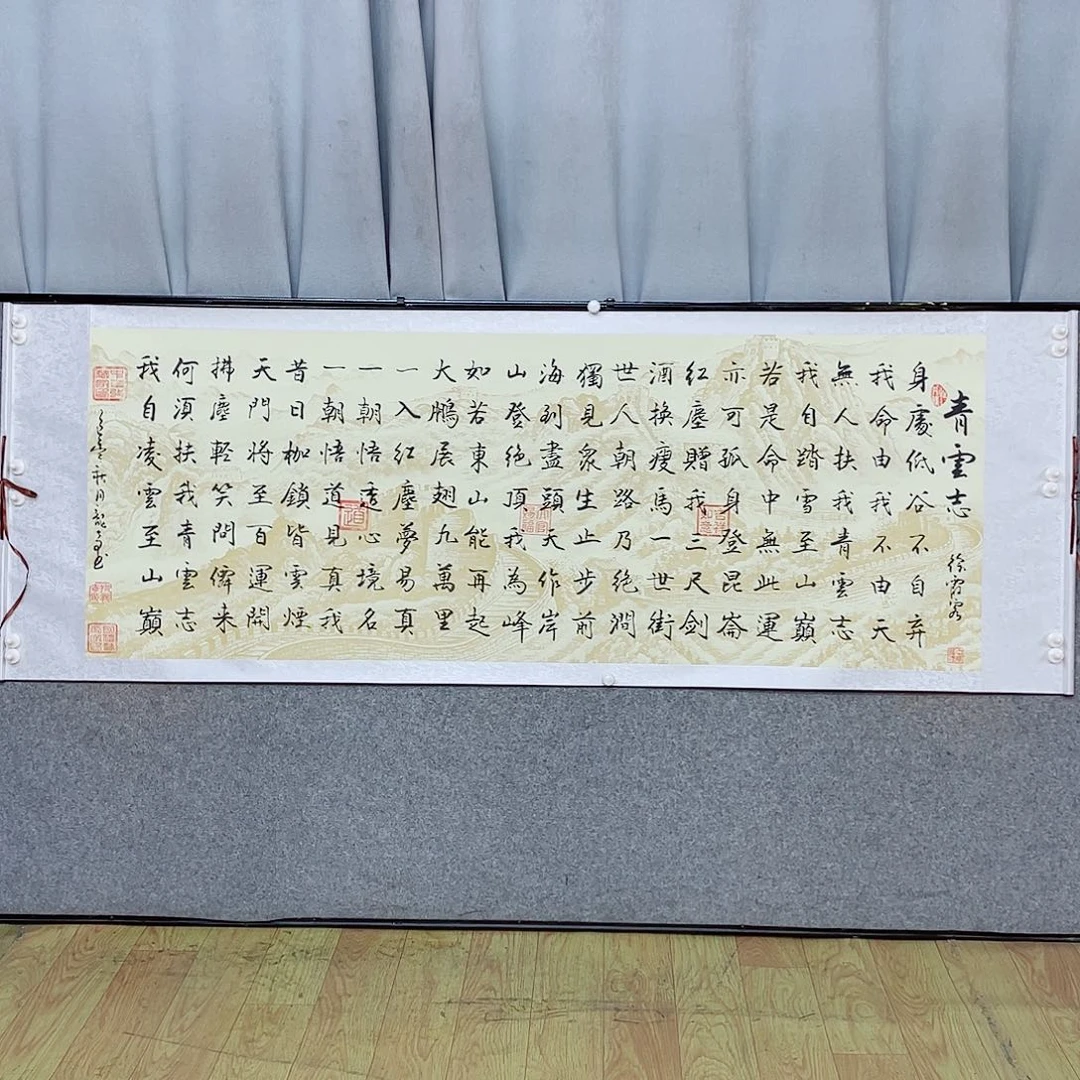 青雲志
徐霞客
身處低谷不自弃
我命由我不由天
無人扶我青雲志
我自踏雪至山巔
若是命中無此運
亦可孤身登昆崙
紅塵贈我三尺劍
酒換瘦馬一世街
世人朝路乃絶澗
獨見衆生止步前
海到盡頭天作岸
山登绝頂我為峰
如若東山能再起
大鵬展翅九萬里
一入紅塵夢易真
一朝悟透心境名
一朝悟道見真我
昔日枷鎖皆雲煙
天門將至百運開
拂塵輕笑問儕未
何須扶我青雲志
我自凌雲至山巔